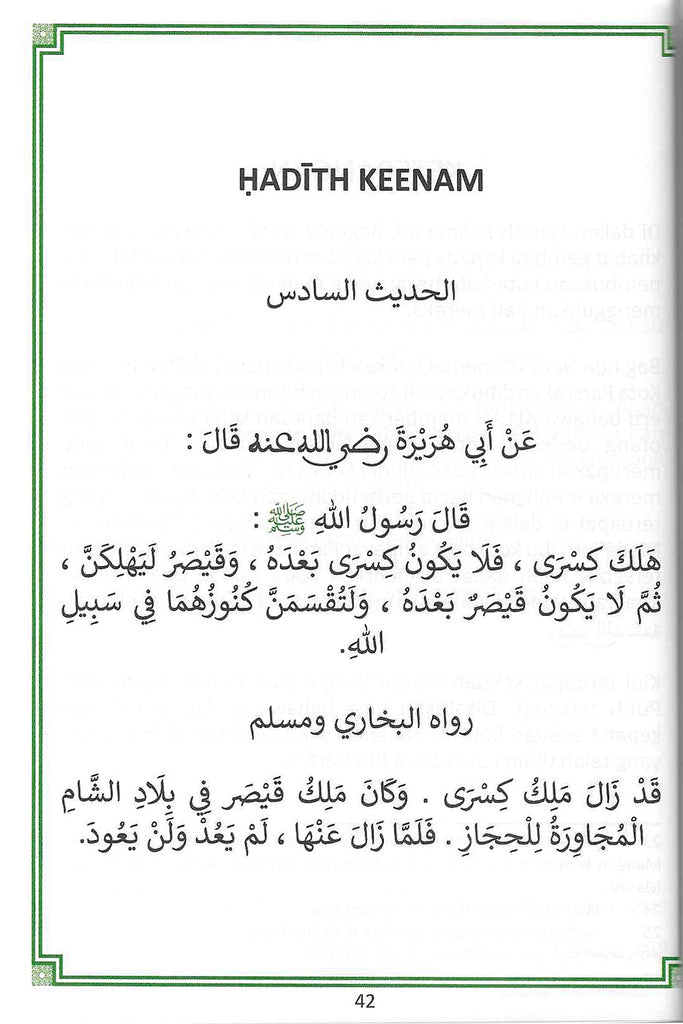 ḤADĪTH KEENAM
الحديث السادس
عَنْ أَبِي هُرَيْرَةَ رضي الله عنه قَالَ :
قَالَ رَسُولُ اللهِ ﷺ :
هَلَكَ كِسْرَى ، فَلَا يَكُونُ كِسْرَى بَعْدَهُ ، وَقَيْصَرُ لَيَهْلِكَنَّ ،
ثُمَّ لَا يَكُونُ قَيْصَرٌ بَعْدَهُ ، وَلَتُقْسَمَنَّ كُنُوزُهُمَا فِي سَبِيلِ
اللهِ.
رواه البخاري ومسلم
قَدْ زَالَ مَلِكُ كِسْرَى . وَكَانَ مَلِكُ قَيْصَر فِي بِلَادِ الشَّامِ
الْمُجَاوِرَةُ لِلْحِجَازِ . فَلَمَّا زَالَ عَنْهَا ، لَمْ يَعُدْ وَلَنْ يَعُودَ.
42